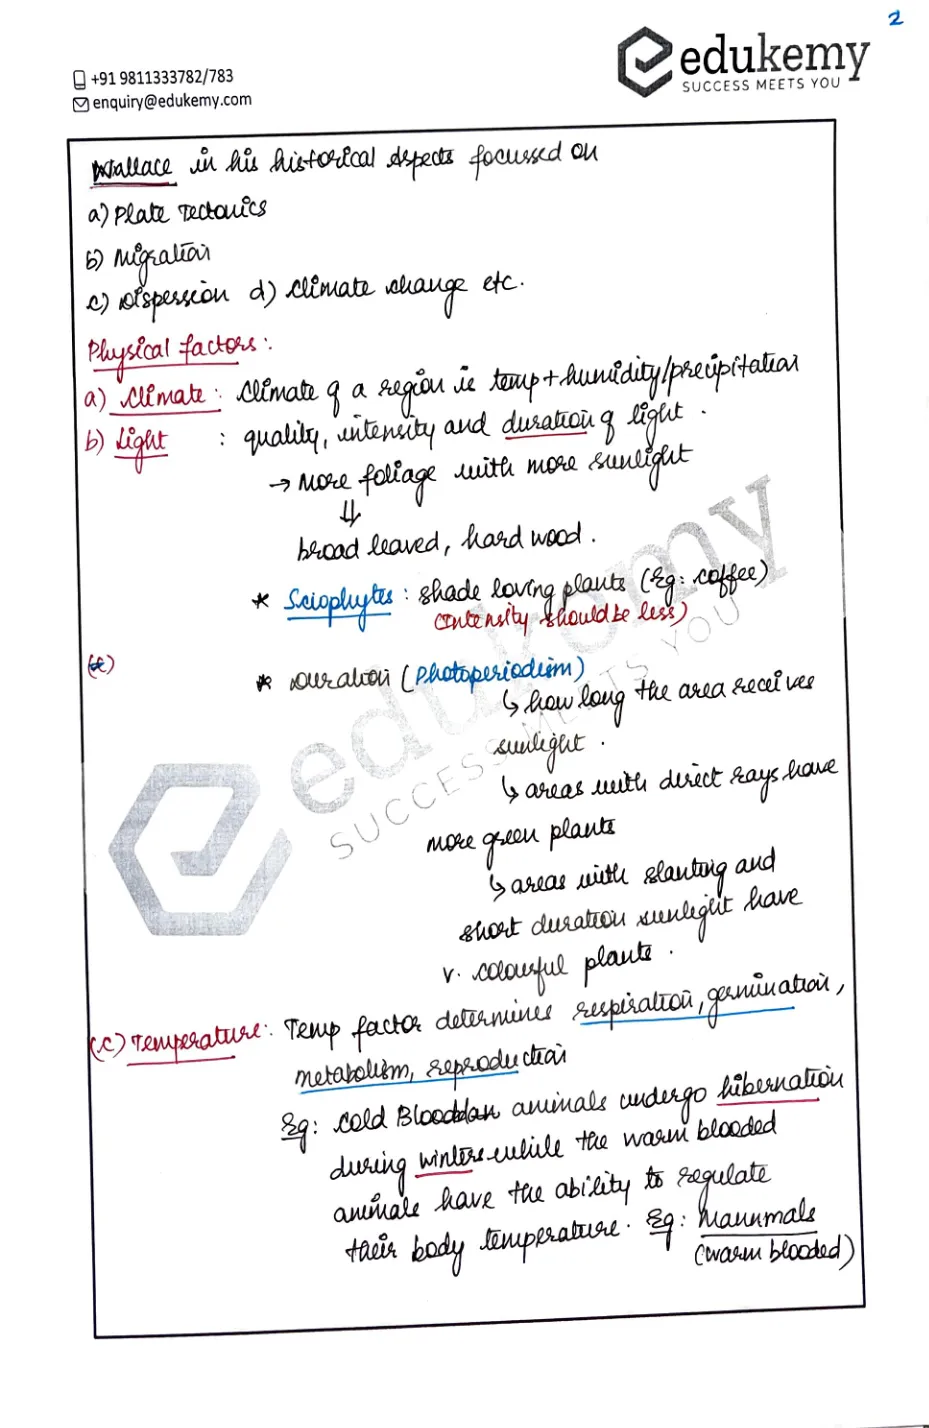 2
edukemy
SUCCESS MEETS YOU
+91 9811333782/783
enquiry@edukemy.com
Wallace in his historical Aspects focussed on
a) Plate Tectonics
b) Migration
c) Dispession d) Climate change etc.
Physical factors:
a) Climate: Climate of a region ie temp+humidity/precipitation
b) Light : quality, intensity and duration of light.
→ More foliage with more sunlight
⇓
broad leaved, hard wood.
* Sciophytes: shade loving plants (Eg: coffee)
(Intensity should be less)
* Duration (Photoperiodism)
↳ how long the area receives
sunlight.
↳ areas with direct rays have
more green plants
↳ areas with slanting and
short duration sunlight have
v. colourful plants.
(c) Temperature: Temp factor determines respiration, germination,
metabolism, reproduction
Eg: Cold Blooded animals undergo hibernation
during winters while the warm blooded
animals have the ability to regulate
their body temperature. Eg: Mammals
(warm blooded)
edukemy
SUCCESS MEETS YOU